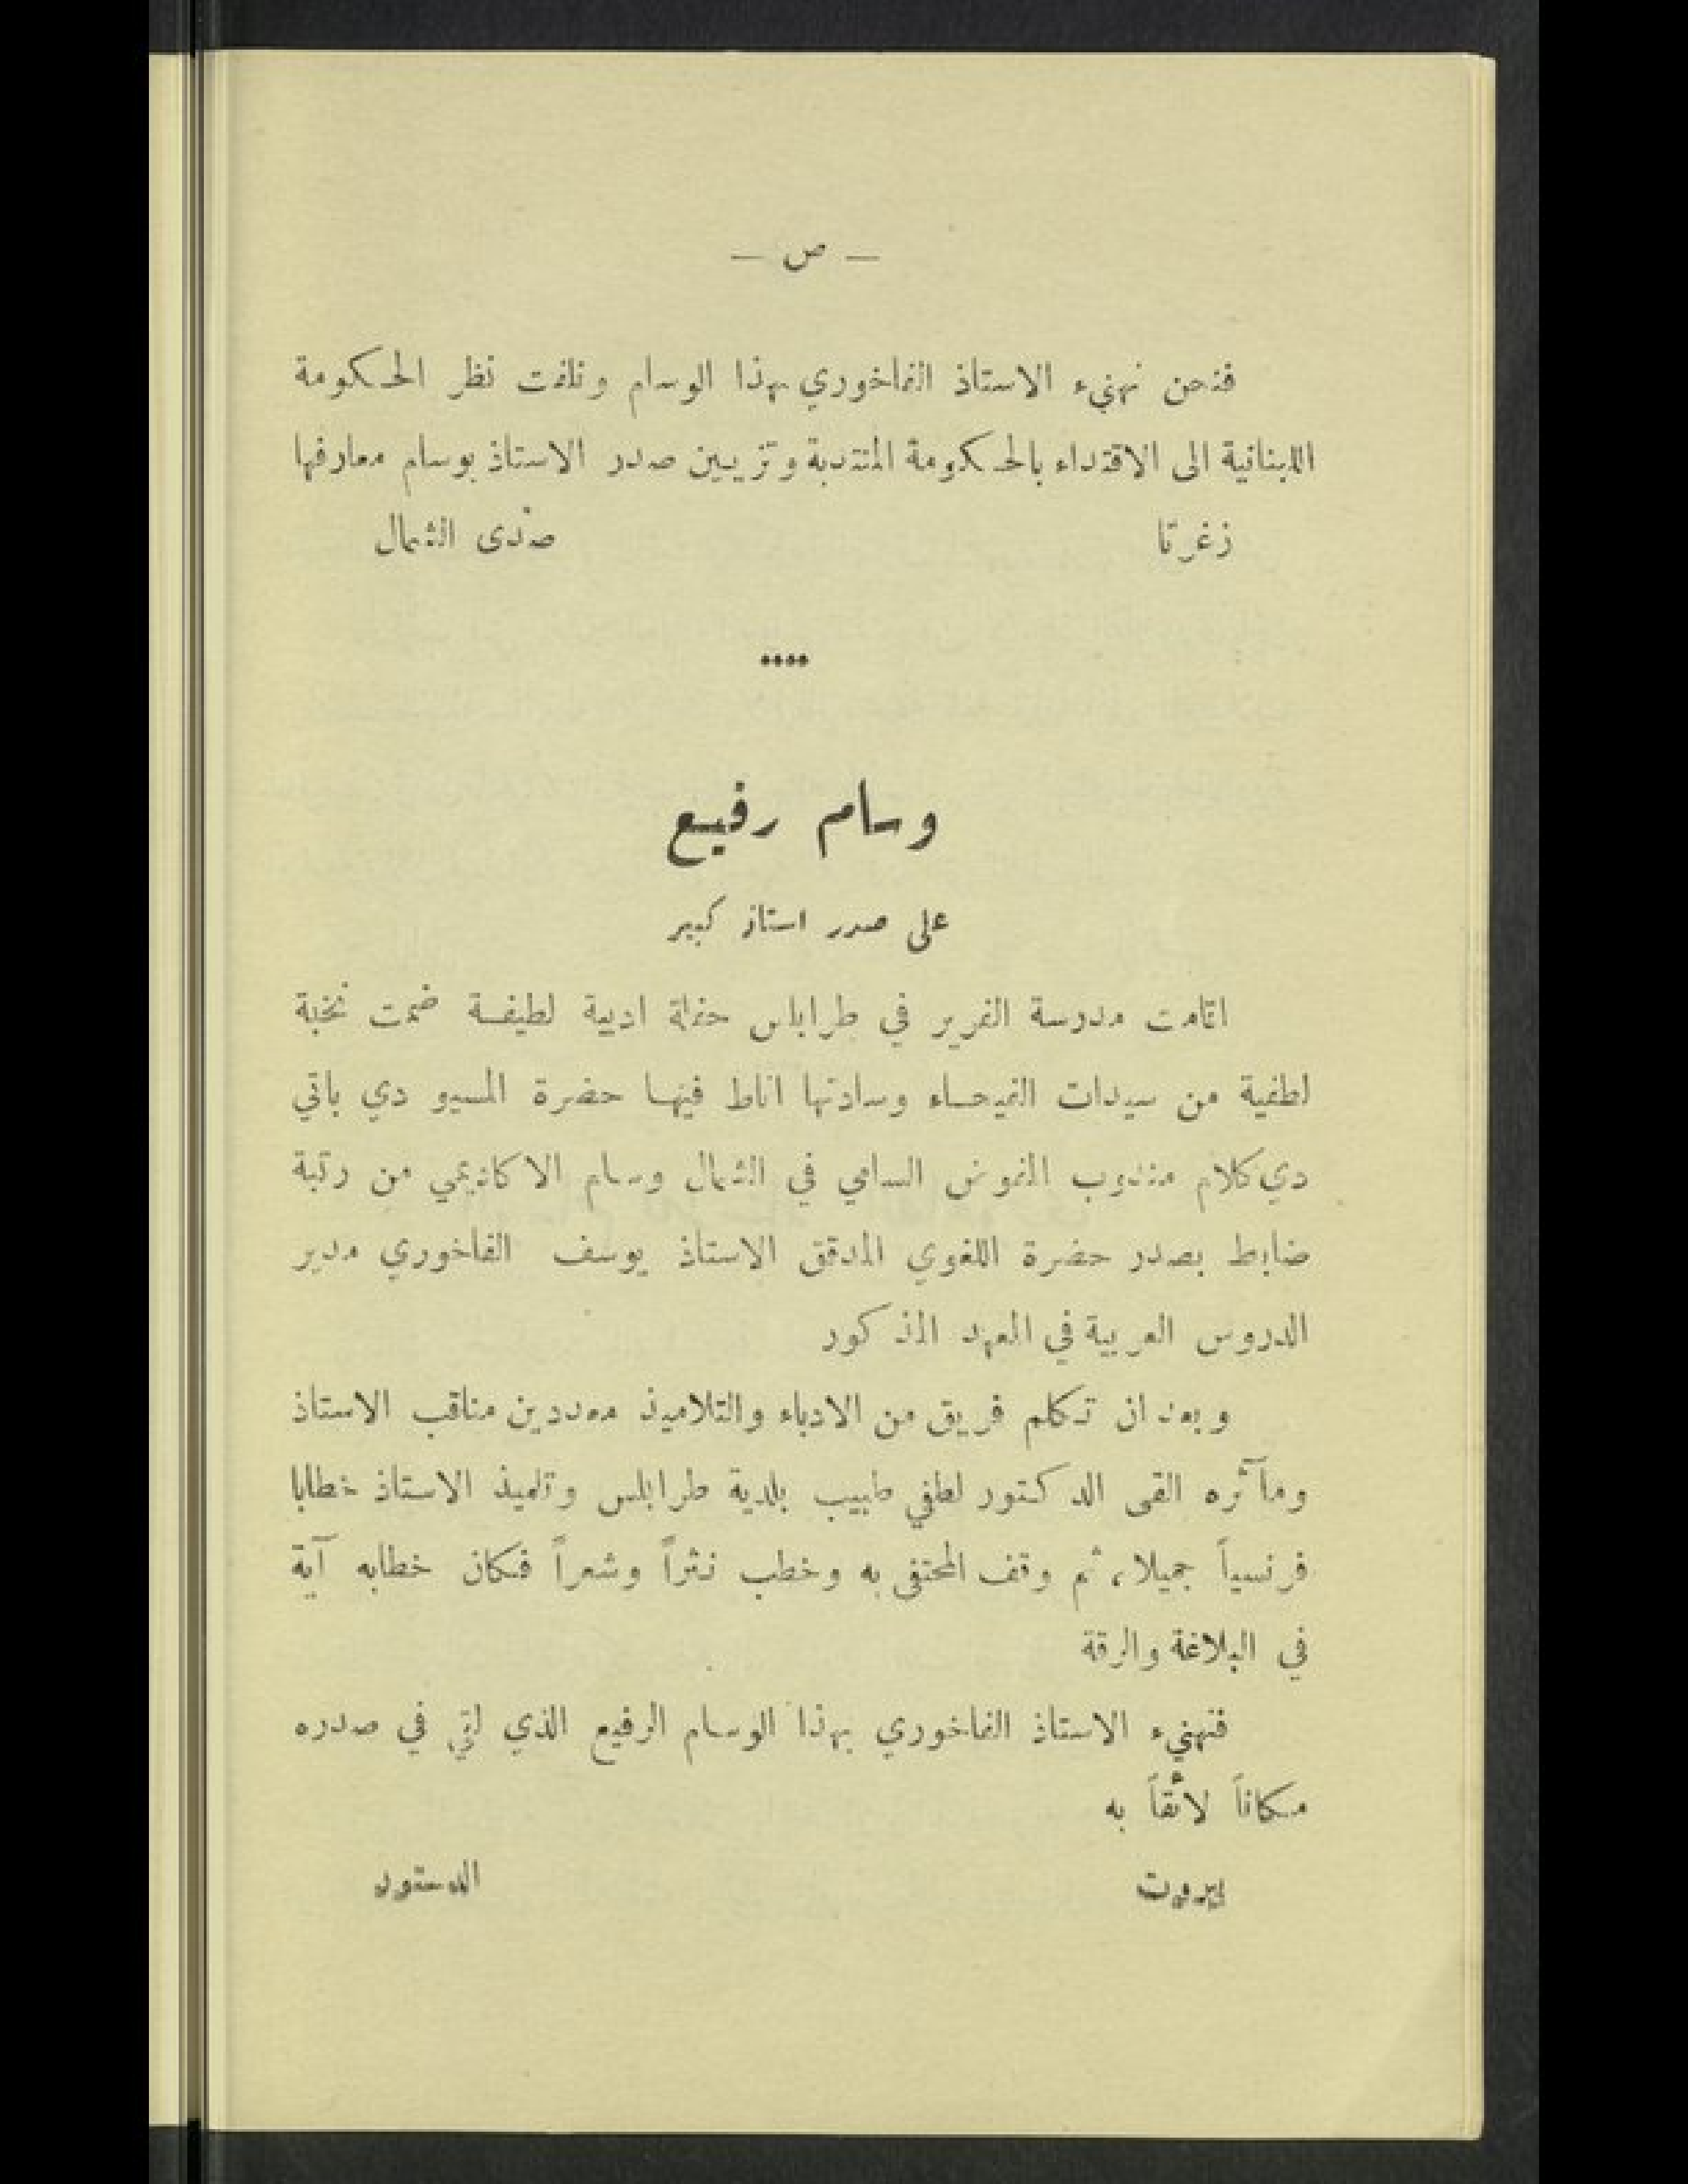 — ص —
فنحن نهنيء الاستاذ الفاخوري بهذا الوسام ونلفت نظر الحكومة
اللبنانية الى الاقتداء بالحكومة المنتدبة وتزيين صدر الاستاذ بوسام معارفها
زغرتا صدى الشمال
••••
وسام رفيع
على صدر استاذ كبير
اقامت مدرسة الفرير في طرابلس حفلة ادبية لطيفة ضمت نخبة
لطفية من سيدات الفيحاء وسادتها اناط فيها حضرة المسيو دي باتي
دي كلام مندوب المفوض السامي في الشمال وسام الاكاديمي من رتبة
ضابط بصدر حضرة اللغوي المدقق الاستاذ يوسف الفاخوري مدير
الدروس العربية في المعهد المذكور
وبعد ان تكلم فريق من الادباء والتلاميذ معددين مناقب الاستاذ
ومآثره القى الدكتور لطفي طبيب بلدية طرابلس وتلميذ الاستاذ خطابا
فرنسياً جميلا، ثم وقف المحتفى به وخطب نثراً وشعراً فكان خطابه آية
في البلاغة والرقة
فنهنيء الاستاذ الفاخوري بهذا الوسام الرفيع الذي لقي في صدره
مكاناً لائقاً به
بيروت الدستور